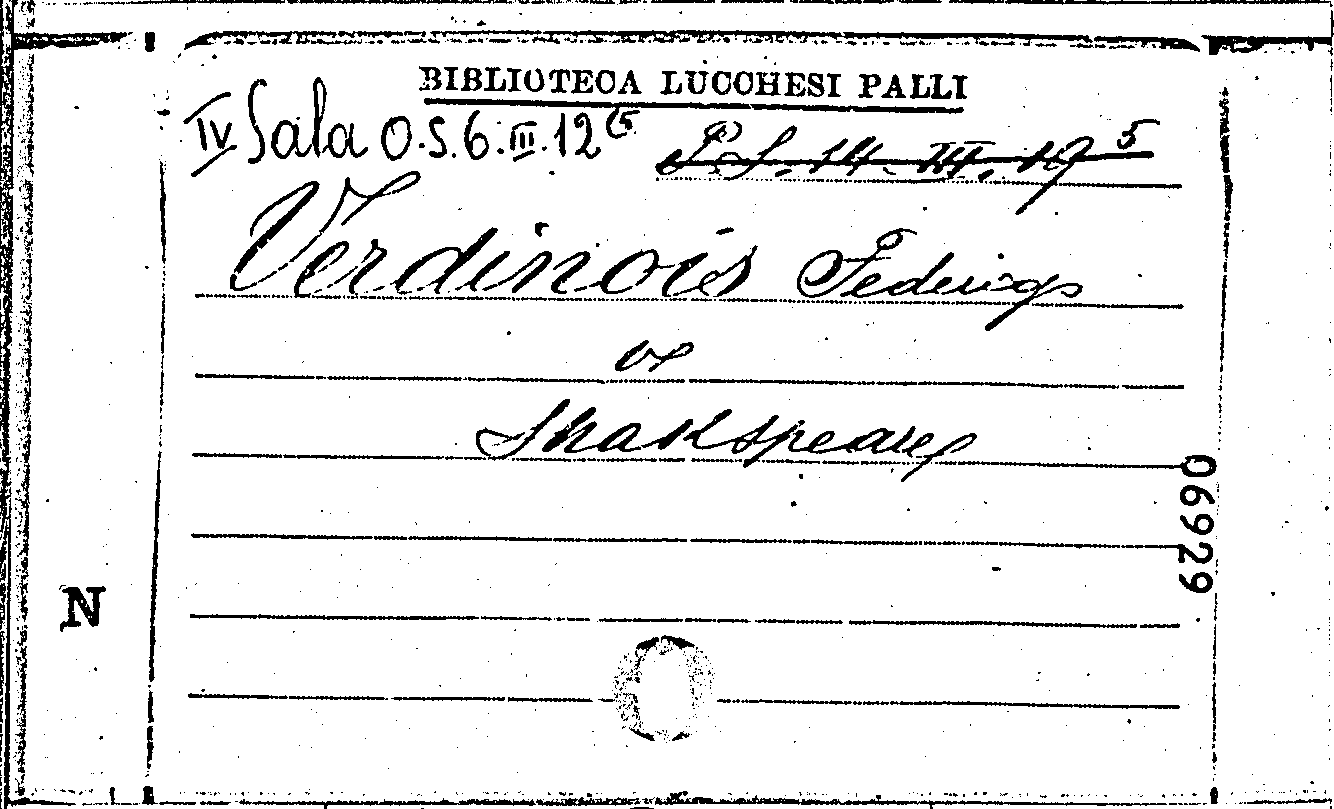 BIBLIOTECA LUCCHESI PALLI
IV Sala O.S.6.III.12(5
P.S. 14. III. 19 5
Verdinois Federigo
v.
Shakspeare
06929
N